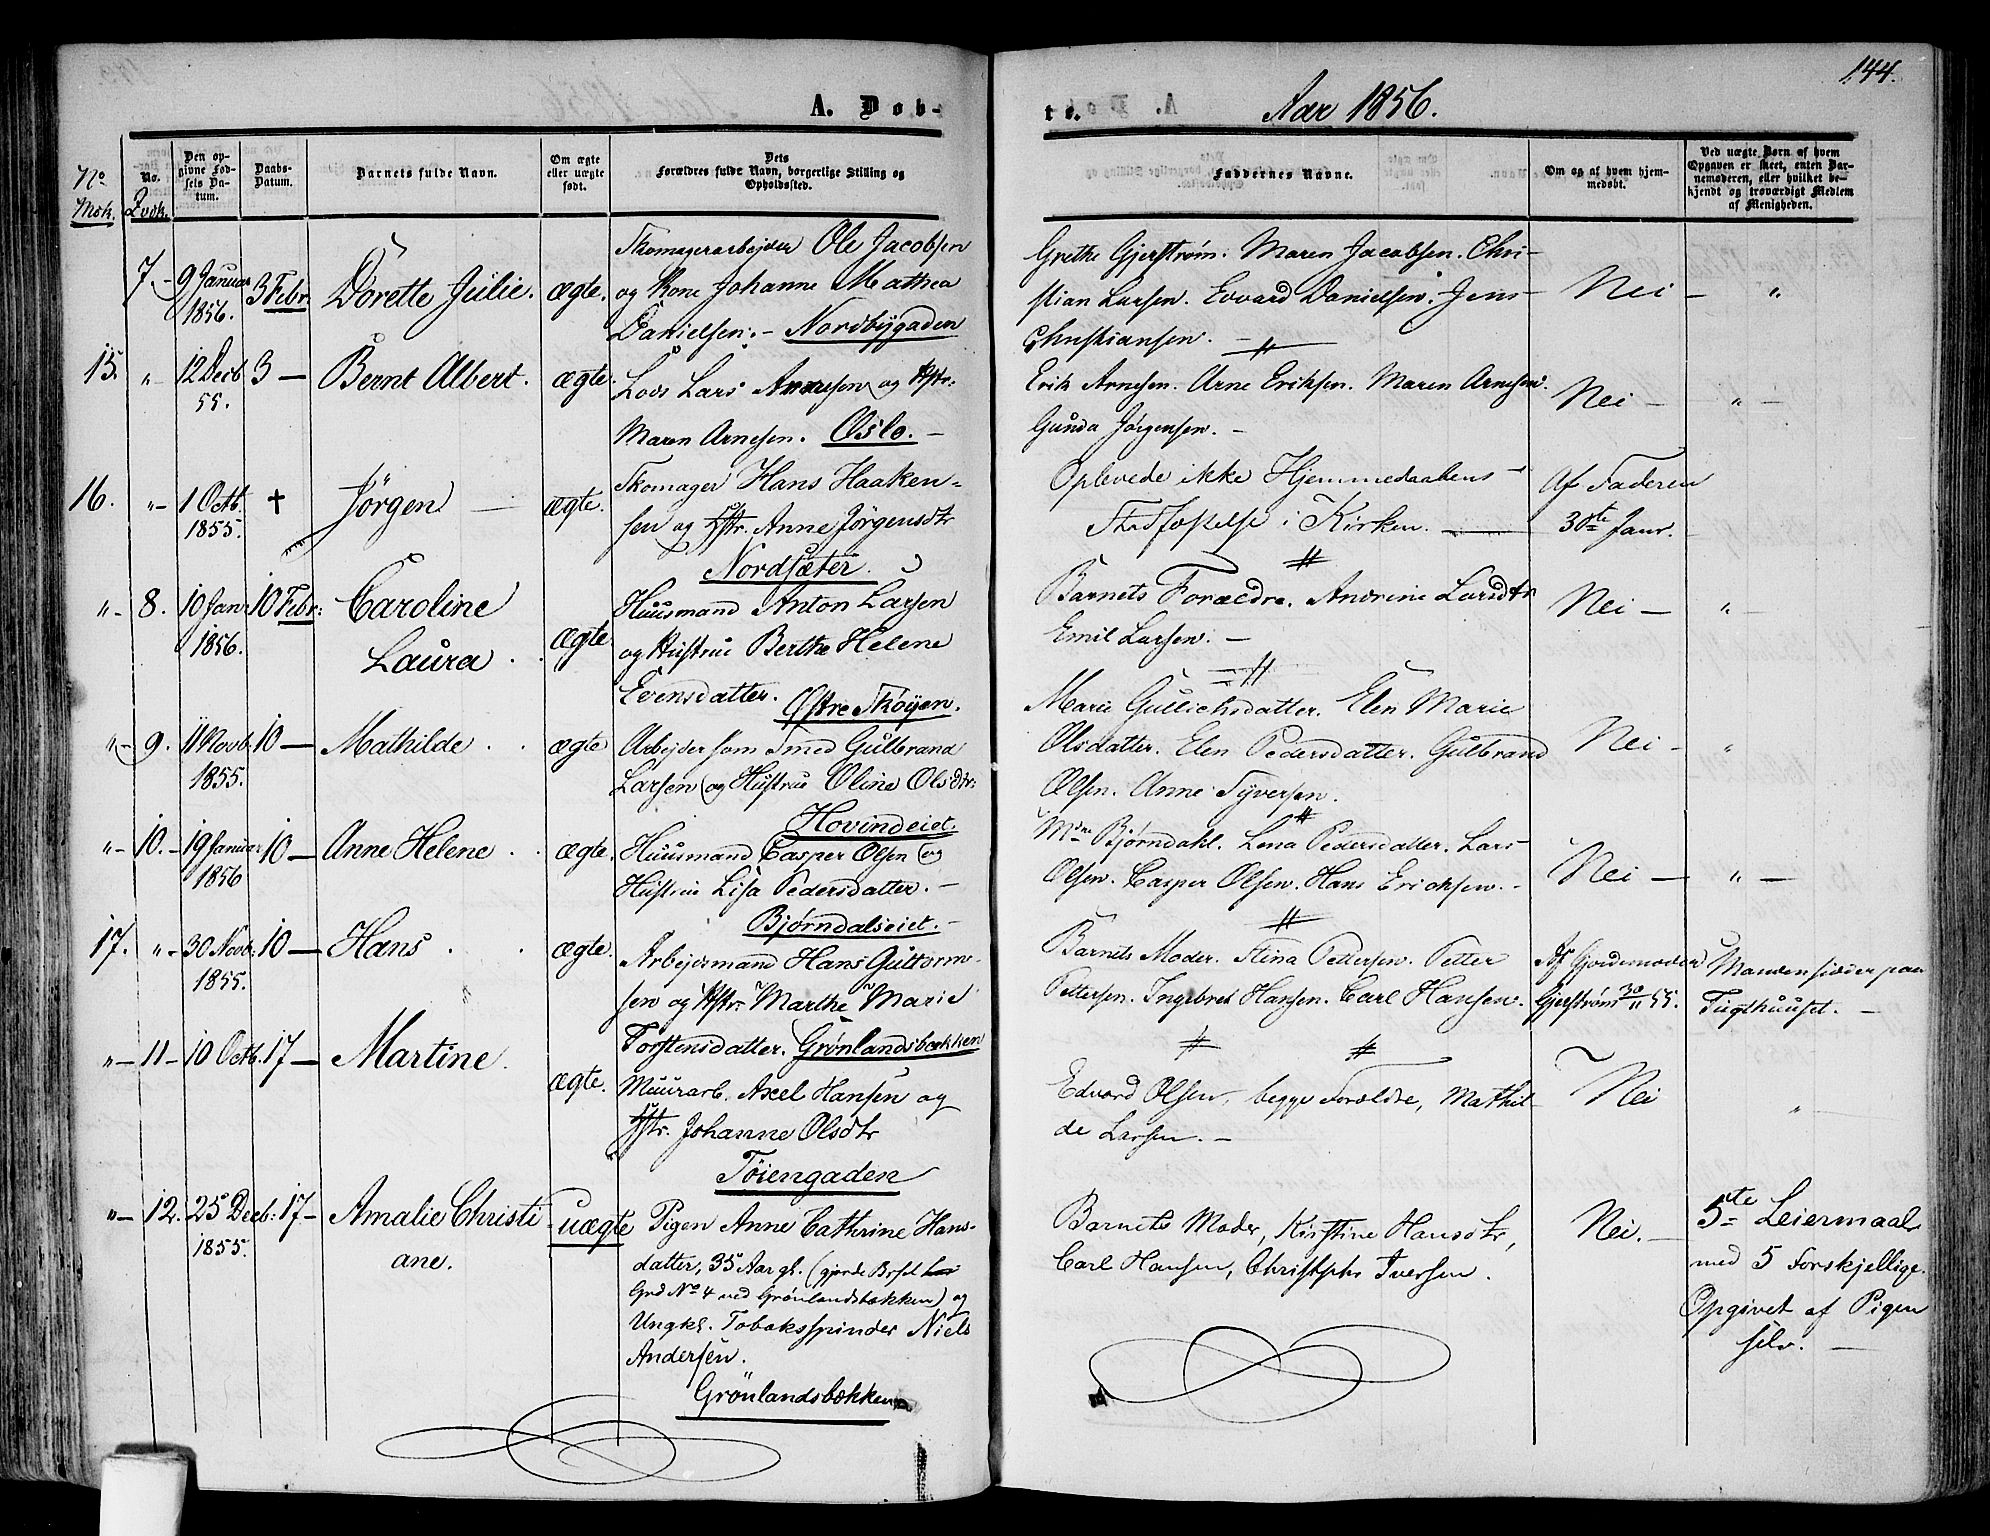 144.
A. Døb-
te.
Aar 1856.
No
Msk.
No.
Qvdk.
Den op-
givne Fød-
sels Da-
tum.
Daabs-
Datum.
Barnets fulde Navn.
Om ægte
eller uægte
født.
Dets
Forældres fulde Navn, borgerlige Stilling og
Opholdssted.
Faddernes Navne.
Om og af hvem hjem-
medøbt.
Ved uægte Børn af hvem
Opgaven er skeet, enten Bar-
nemoderen, eller hvilket be-
kjendt og troværdigt Medlem
af Menigheden.
7. 9 Januar 1856. 3 Febr. Dorette Julie. ægte.
Skomagerarbejder Ole Jacobsen
og Kone Johanne Mathea
Danielsen. - Nordbygaden
Grethe Gjerstrøm. Maren Jacobsen. Chri-
stian Larsen. Evvard Danielsen. Jens
Christiansen. -
Nei - "
15. " 12 Decb 55. 3 - Bernt Albert. ægte.
Lods Lars Andresen og Hstr:
Maren Arnesen. Oslo. -
Erik Arnesen. Arne Eriksen. Maren Arnesen.
Gunda Jørgensen. -
Nei - " -
16. " 1 Octb. 1855. † Jörgen - ægte.
Skomager Hans Haaken-
sen og Hstr. Anne Jörgensdtr
Nordsæter.
Oplevede ikke Hjemmedaabens
Stadfæstelse i Kirken. -
Af Faderen
30te Janr.
" 8. 10 Jan 1856. 10 Febr: Caroline
Laura . . ægte.
Huusmand Anton Larsen
og Hustrue Berthe Helene
Evensdatter. Østre Skøyen.
Barnets Forældre. Andrine Larsdtr
Emil Larsen. -
Nei - " -
" 9. 11 Novb. 1855. 10 - Mathilde . . ægte
Arbejder som Smed Gulbrand
Larsen (og Hustrue Oline Olsdtr.
Hovindeiet.
Marie Gullichsdatter. Elen Marie
Olsdatter. Elen Pedersdatter. Gulbrand
Olsen. Anne Syversen.
Nei - "
" 10. 19 Januar 1856 10 - Anne Helene . . ægte.
Huusmand Casper Olsen (og
Hustrue Lisa Pedersdatter. -
Bjørndalseiet. -
Mdm Bjørndahl. Lena Pedersdatter. Lars
Olsen. Casper Olsen. Hans Erichsen. -
Nei - " -
17. " 30 Novb. 1855. 10 - Hans . . ægte.
Arbejdsmand Hans Guttorm-
sen og Hstr: Marthe Marie
Torstensdatter. Grønlandsbækken
Barnets Moder. Stina Pettersen. Petter
Pettersen. Ingebret Hansen. Carl Hansen.
Af Gjordemoder
Gjerstrøm 30/11 55.
Manden sidder paa
Tugthuuset. -
" 11 - 10 Octb. 17 - Martine. ægte.
Muurarb. Axel Hansen og
Hstr. Johanne Olsdtr
Töiengaden
Edvard Olsen, begge Forældre, Mathil-
de Larsen. -
Nei "
" 12. 25 Decb: 1855. 17 - Amalie Christi
ane. uægte
Pigen Anne Cathrine Hans-
datter, 35 Aar gl. (gjorde Barsel
Grd No 4 ved Grønlandsbækken) og
Ungkl. Tobaksspinder Niels
Andersen.
Grönlandsbækken
Barnets Moder, Kirstine Hansdtr,
Carl Hansen, Christopher Iversen.
Nei. -
5te Leiermaal
med 5 forskjellige.
Opgivet af Pigen
selv. -